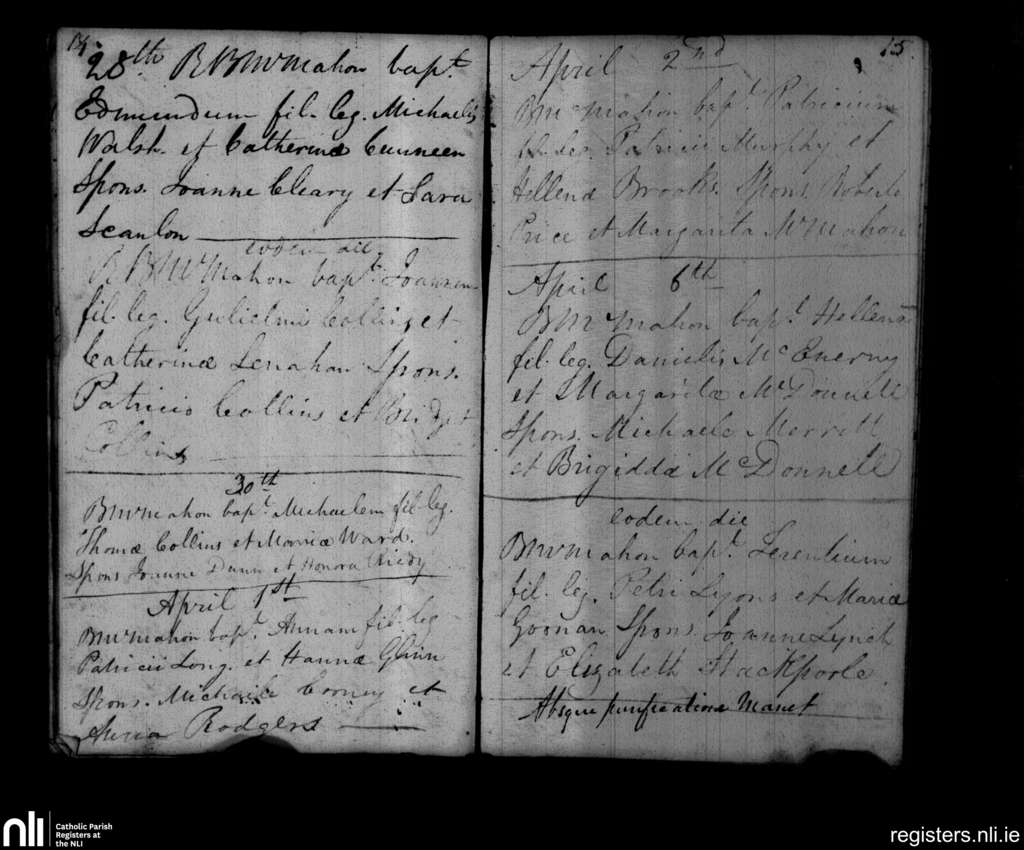 14.
28th R B McMahon bapt.
Edmundum fil. leg. Michaelis
Walsh. et Catherinæ Cunneen
Spons. Joanne Cleary et Sara
Scanlon
eodem die
R B McMahon bapt. Joannem
fil. leg. Gulielmi Collins et
Catherinæ Lenahan Spons.
Patricio Collins et Bridget
Collins
30th
B McMahon bapt. Michaelem fil. leg.
Thomæ Collins et Mariæ Ward.
Spons Joanne Dunn et Honora
April 1st
B McMahon bapt. Annam fil. leg
Patricii Long. et Hannæ Glinn
Spons. Michaele Corney et
Anna Rodgers
15.
April 2nd
B McMahon bapt. Patricium
fil. leg. Patricii Murphy et
Hellenæ Brooks. Spons. Roberto
Price et Margarita McMahon
April 6th
B McMahon bapt. Hellenam
fil. leg. Danielis McEnerny
et Margaritæ McDonnell
Spons. Michaele Merritt
et Brigidda McDonnell
eodem die
B McMahon bapt. Terentium
fil. leg. Petri Lyons et Mariæ
Goonan Spons. Joanne Lynch
et Elizabeth Stackpoole.
Absque purificatione Manet
nli
Catholic Parish
Registers at
the NLI
registers.nli.ie